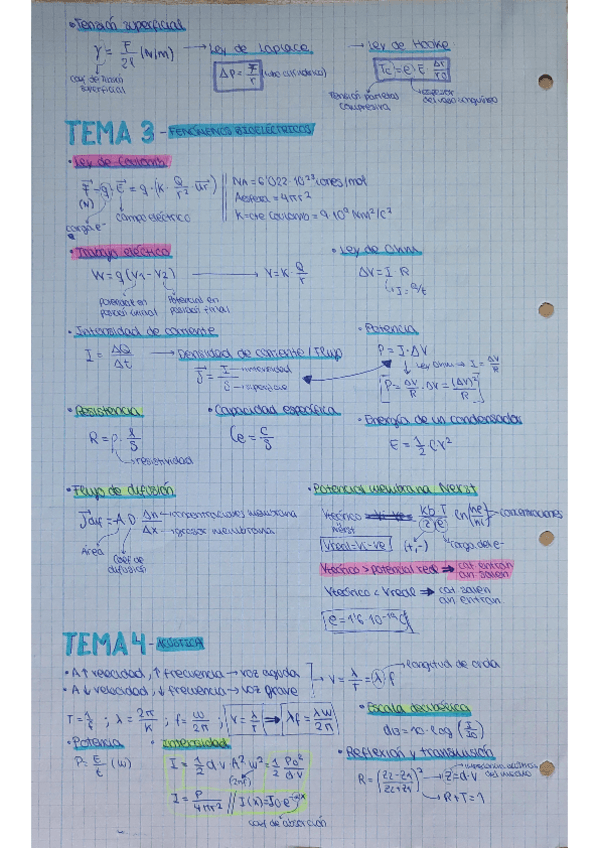 • Tensión superficial
γ = F/2l (N/m) → Ley de Laplace → Ley de Hooke
coef. de tensión superficial
ΔP = T/r (vaso cilíndrico)
Tc = e · E · Δr/r0
Tensión paredes
compresiva
espesor
del vaso sanguíneo
TEMA 3 - FENÓMENOS BIOELÉCTRICOS
• Ley de Coulomb
F = q · E = q · (K · Q/r² · ur)
(N)
carga e-
campo eléctrico
NA = 6'022 · 10²³ iones/mol
Aesfera = 4πr²
K = cte Coulomb = 9 · 10⁹ Nm²/C²
• Trabajo eléctrico
W = q (V1 - V2) → V = K · Q/r
potencial en
posición inicial
Potencial en
posición final
• Ley de Ohm
ΔV = I · R
I = Q/t
• Intensidad de corriente
I = ΔQ/Δt → Densidad de corriente / Flujo
J = I/S → intensidad
→ superficie
• Potencia
P = I · ΔV
Ley Ohm → I = ΔV/R
P = ΔV/R · ΔV = (ΔV)²/R
• Resistencia
R = ρ · l/S
→ resistividad
• Capacidad específica
Ce = C/S
• Energía de un condensador
E = 1/2 C V²
• Flujo de difusión
Jdif = A D Δn/Δx → concentraciones membrana
→ grosor membrana
Área
Coef de
difusión
• Potencial membrana Nernst
Vteórico = Kb T/(z e) ln (ne/ni) → concentraciones
Nernst
Vreal = Vi - Ve
(+,-)
carga del e-
Vteórico > potencial rede → cat. entran
an. salen
Vteórico < Vrede → cat. salen
an. entran.
e = 1'6 · 10⁻¹⁹ C
TEMA 4 - ACÚSTICA
• A ↑ velocidad, ↑ frecuencia → voz aguda
• A ↓ velocidad, ↓ frecuencia → voz grave
v = λ/T = λ · f
→ longitud de onda
T = 1/f ; λ = 2π/K ; f = ω/2π ; v = λ/T ⇒ λf = λω/2π
• Escala decibélica
dB = 10 · log (I/I0)
• Potencia
P = E/t (W)
• Intensidad
I = 1/2 d v A² ω² = 1/2 P0²/dv
(2πf)
I = P/4πr² // I(x) = I0 e^-αx
coef de absorción
• Reflexión y transmisión
R = ((Z2 - Z1)/(Z2 + Z1))² → Z = d · v
impedancia acústica
del medio
→ R + T = 1